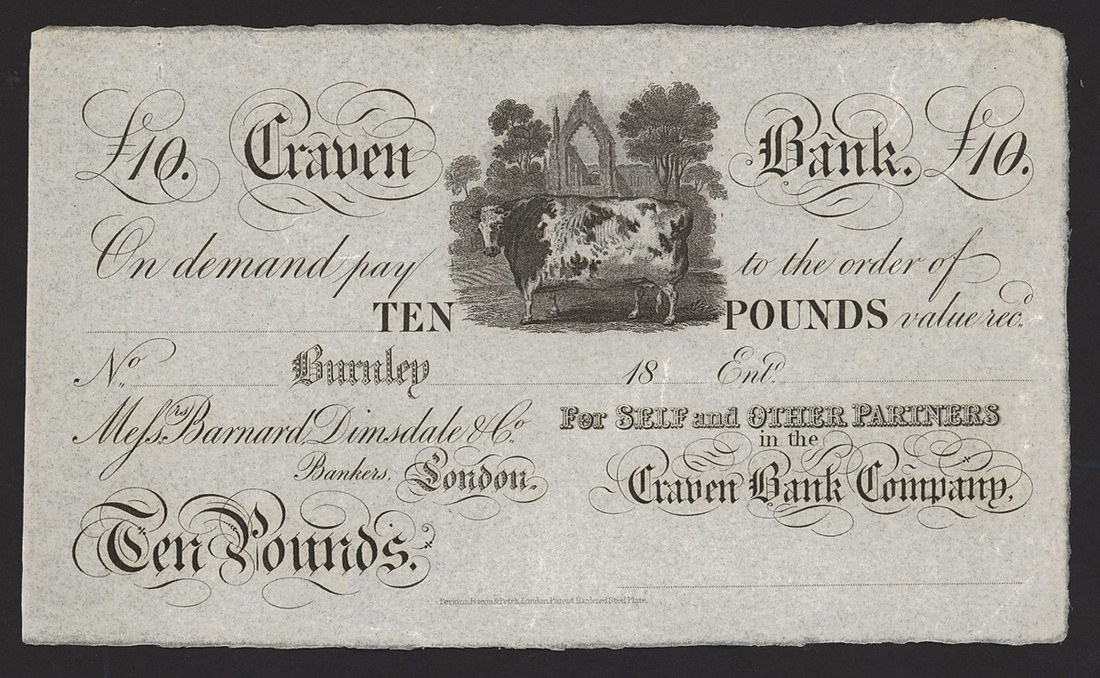 £10. Craven Bank. £10.
On demand pay to the order of
TEN POUNDS value rec.d
No. Burnley 18 Ent.d
Mess.rs Barnard, Dimsdale & Co. For SELF and OTHER PARTNERS
in the
Bankers, London. Craven Bank Company.
Ten Pounds.
Perkins, Bacon & Petch, London, Patent Hardened Steel Plate.